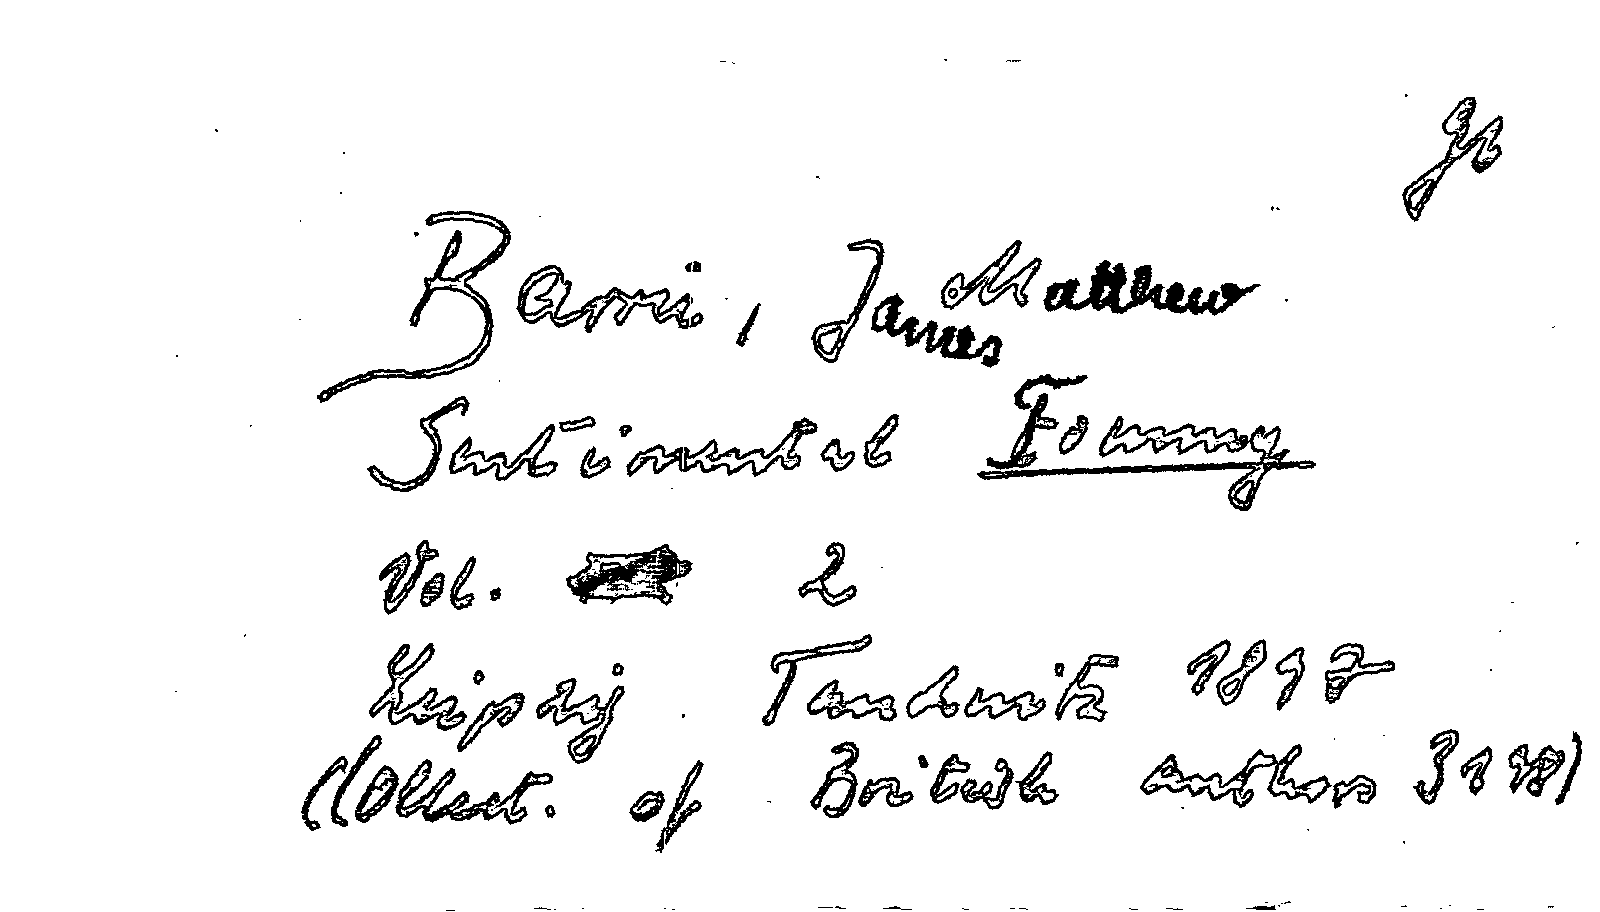 Barrie, James Matthew
Sentimental Tommy
Vol. 2
Leipzig Tauchnitz 1897
(Collect. of British authors